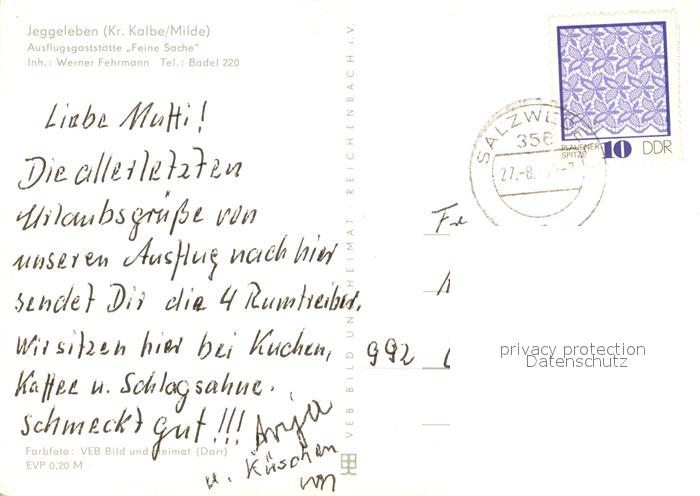 Jeggeleben (Kr. Kalbe/Milde)
Ausflugsgaststätte „Feine Sache"
Inh.: Werner Fehrmann Tel.: Badel 220
Liebe Mutti!
Die allerletzten
Urlaubsgrüße von
unseren Ausflug nach hier
sendet Dir die 4 Rumtreiber.
Wir sitzen hier bei Kuchen,
Kaffee u. Schlagsahne.
Schmeckt gut!!!
u. Küschen
von
Farbfoto: VEB Bild und Heimat (Darr)
EVP 0,20 M
VEB BILD UND HEIMAT REICHENBACH i.V.
SALZWEDEL
356
27.-8.
PLAUENER
SPITZE 10 DDR
992
privacy protection
Datenschutz